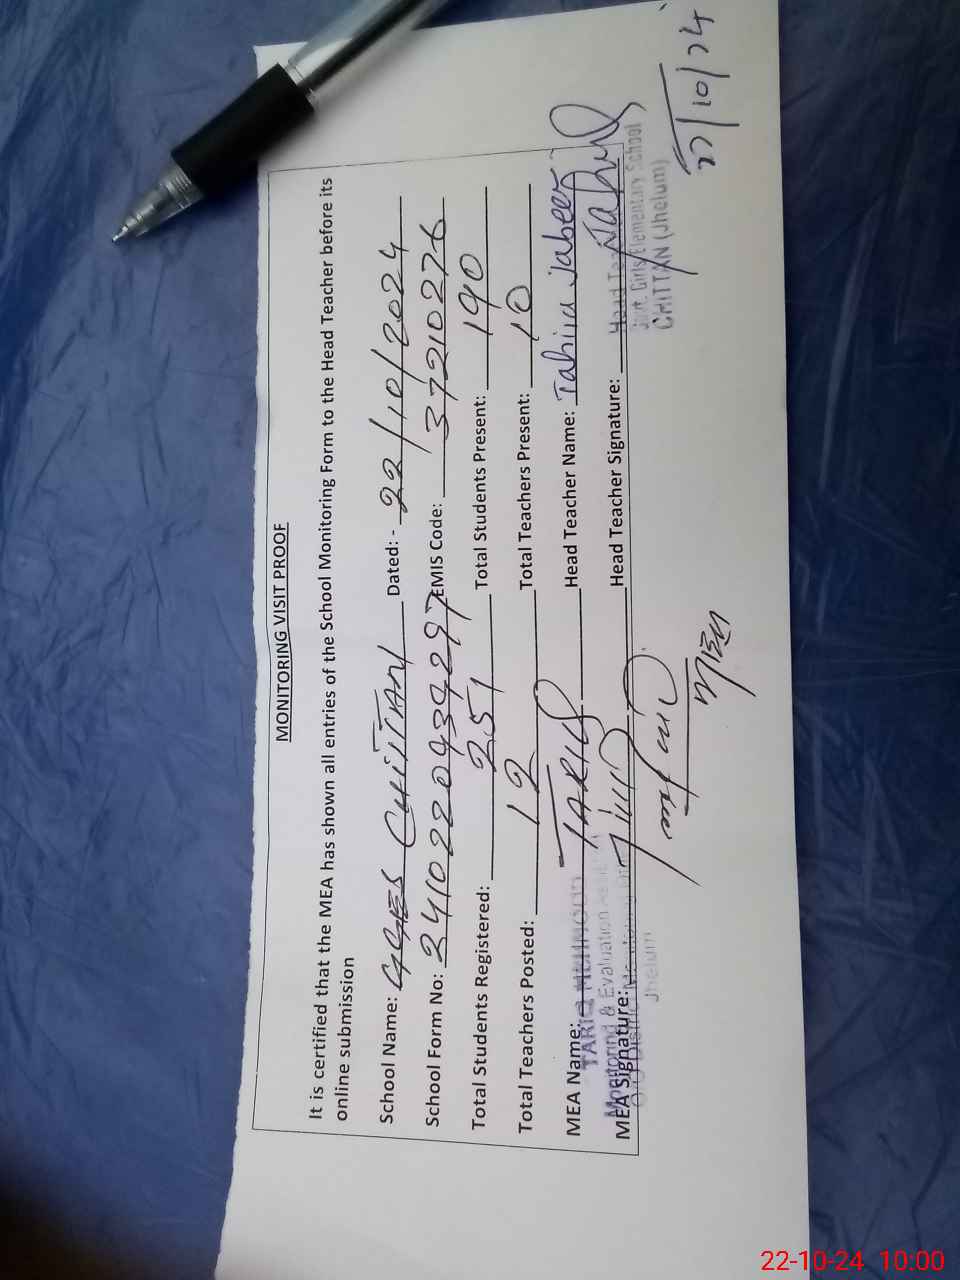 MONITORING VISIT PROOF
It is certified that the MEA has shown all entries of the School Monitoring Form to the Head Teacher before its
online submission
School Name: GGES CHITTAN Dated: - 22/10/2024
School Form No: 2410220939297 EMIS Code: 37210276
Total Students Registered: 251 Total Students Present: 190
Total Teachers Posted: 12 Total Teachers Present: 10
MEA Name: TARIQ Head Teacher Name: Tahira Jabeen
TARIQ MEHMOOD
Monitoring & Evaluation
MEA Signature: Head Teacher Signature:
Head
Govt. Girls Elementary School
CHITTAN (Jhelum)
Jhelum
22-10-24 10:00